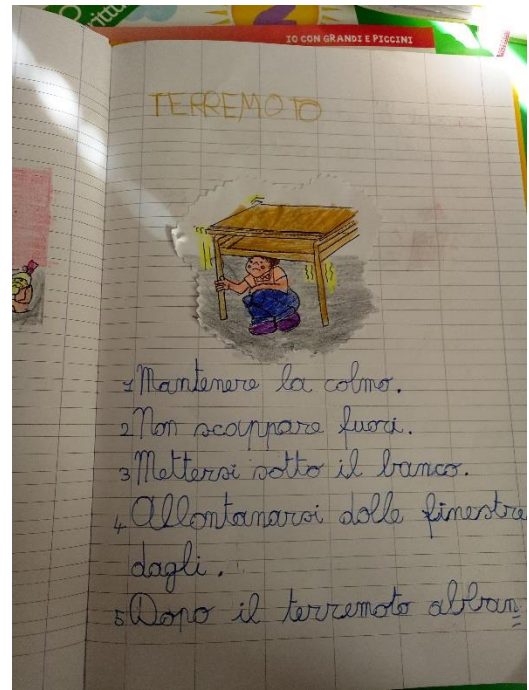 IO CON GRANDI E PICCINI
TERREMOTO
1 Mantenere la calma.
2 Non scappare fuori.
3 Mettersi sotto il banco.
4 Allontanarsi dalle finestre
dagli.
5 Dopo il terremoto abban=